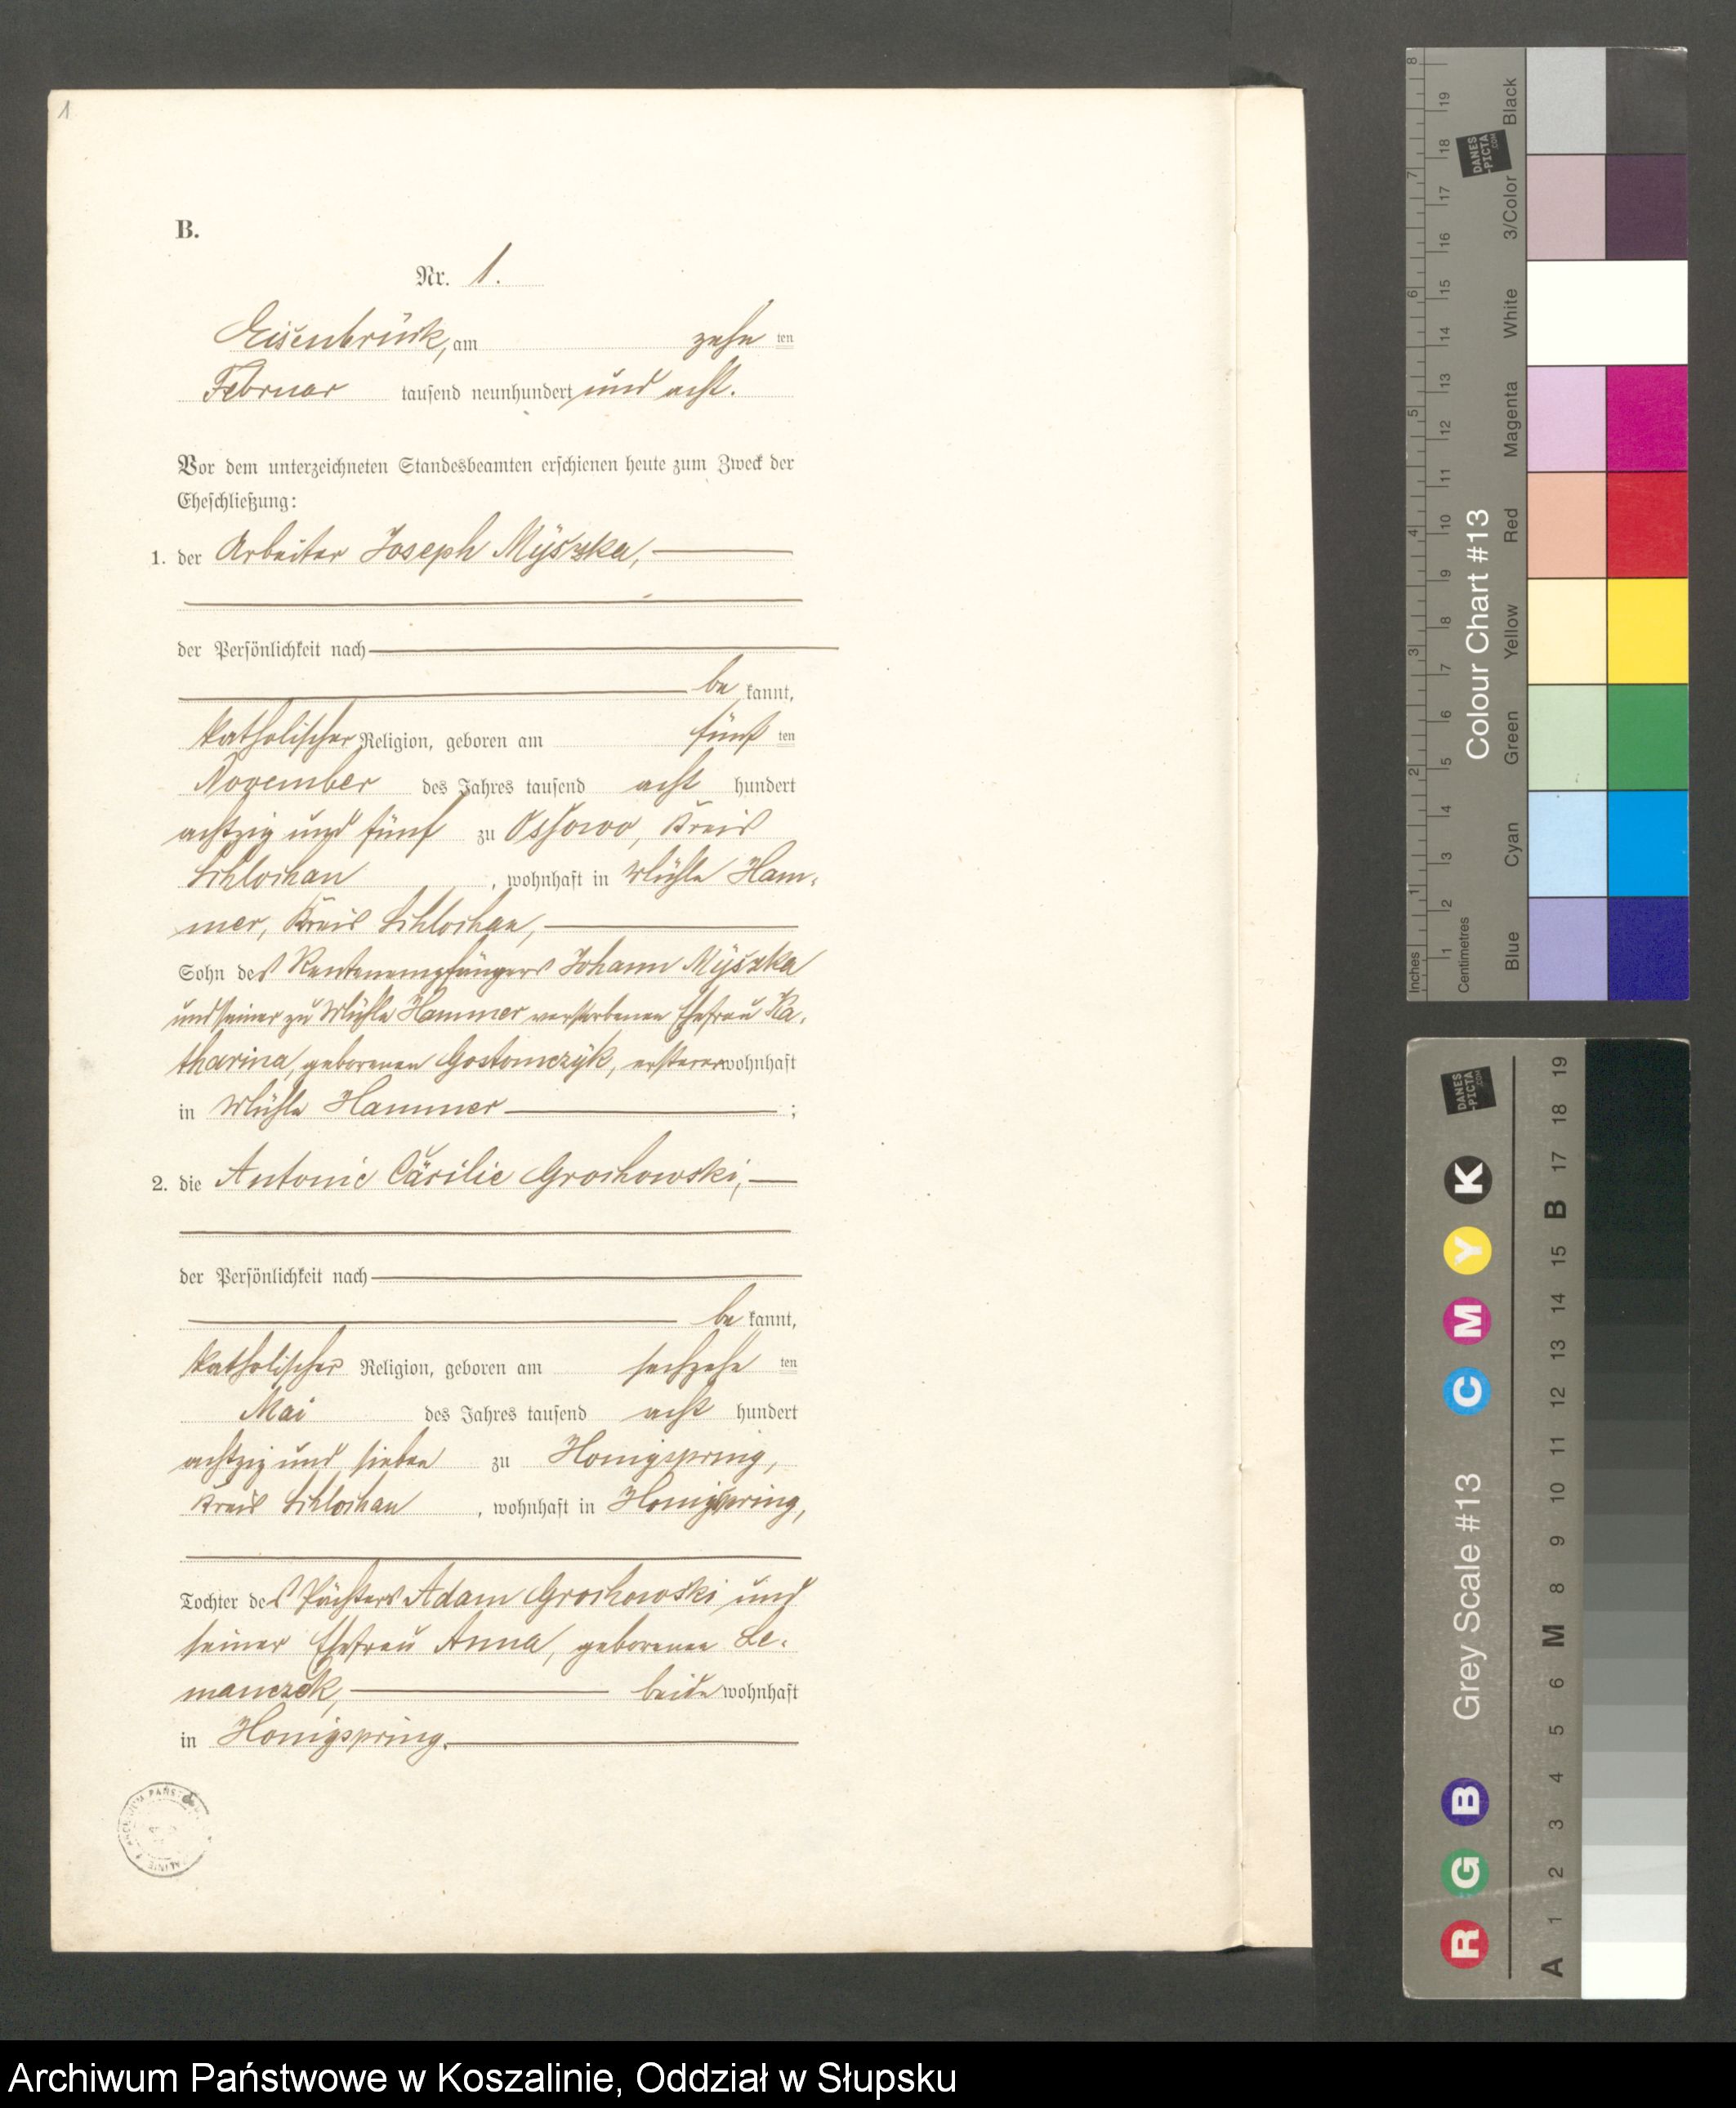 1
B.
Nr. 1.
Eisenbrück, am zehn ten
Februar tausend neunhundert und acht.
Vor dem unterzeichneten Standesbeamten erschienen heute zum Zweck der
Eheschließung:
1. der Arbeiter Joseph Myszka,
der Persönlichkeit nach
be kannt,
katholischer Religion, geboren am fünf ten
November des Jahres tausend acht hundert
achtzig und fünf zu Ossowo, Kreis
Schlochau, wohnhaft in Mühle Ham-
mer, Kreis Schlochau,
Sohn des Rentenempfängers Johann Myszka
und seiner zu Mühle Hammer verstorbenen Ehefrau Ka-
tharina, geborenen Gostomczyk, ersterer wohnhaft
in Mühle Hammer ;
2. die Antonie Cäcilie Grochowski,
der Persönlichkeit nach
be kannt,
katholischer Religion, geboren am sechzehn ten
Mai des Jahres tausend acht hundert
achtzig und sieben zu Honigspring,
Kreis Schlochau, wohnhaft in Honigspring,
Tochter des Pächters Adam Grochowski und
seiner Ehefrau Anna, geborenen Le-
manczek, beide wohnhaft
in Honigspring.
Inches
Centimetres
Colour Chart #13
Blue Cyan Green Yellow Red Magenta White 3/Color Black
DANES
-PICTA
.COM
Grey Scale #13
R G B C M Y K
A 1 2 3 4 5 6 M 8 9 10 11 12 13 14 15 B 17 18 19
DANES
-PICTA
.COM
Archiwum Państwowe w Koszalinie, Oddział w Słupsku